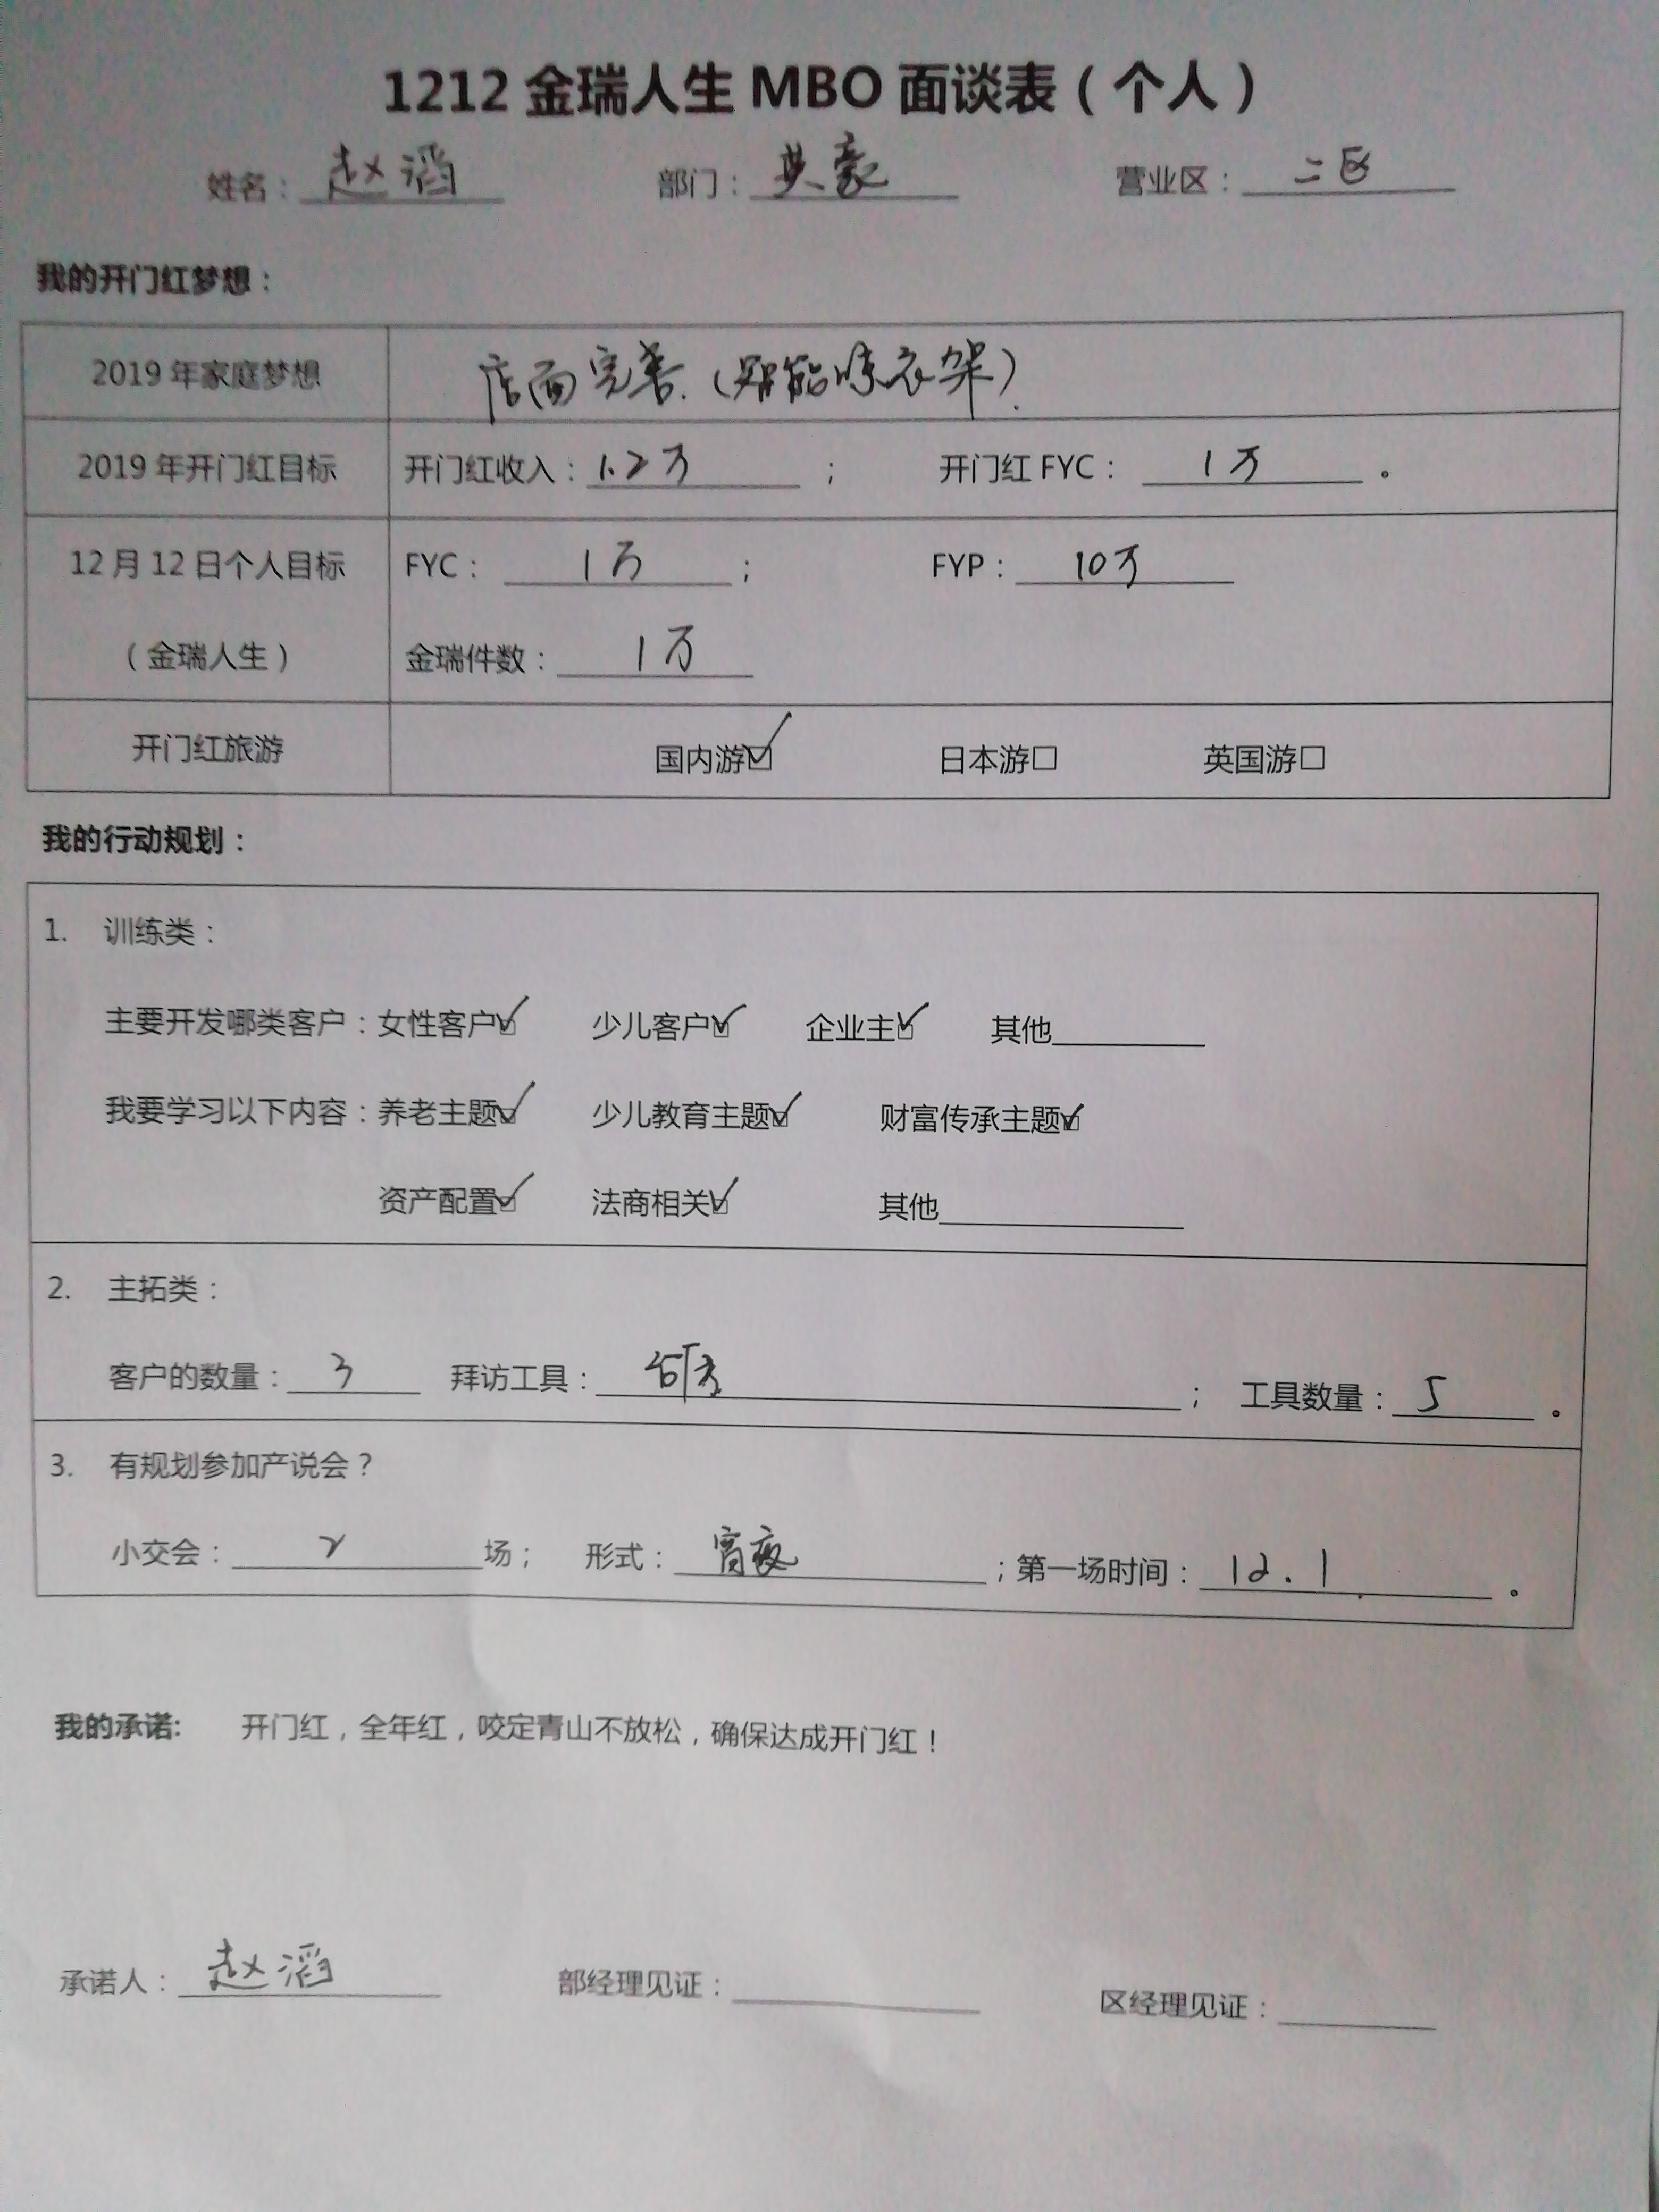 1212金瑞人生MBO面谈表（个人）
姓名：赵滔 部门：英豪 营业区：二区
我的开门红梦想：
2019年家庭梦想 店面完善.（智能晾衣架）.
2019年开门红目标 开门红收入：1.2万； 开门红FYC：1万。
12月12日个人目标 FYC：1万； FYP：10万
（金瑞人生） 金瑞件数：1万
开门红旅游 国内游☑ 日本游□ 英国游□
我的行动规划：
1. 训练类：
主要开发哪类客户：女性客户☑ 少儿客户☑ 企业主☑ 其他
我要学习以下内容：养老主题☑ 少儿教育主题☑ 财富传承主题☑
资产配置☑ 法商相关☑ 其他
2. 主拓类：
客户的数量：3 拜访工具： ； 工具数量：5。
3. 有规划参加产说会？
小交会：2场； 形式：宵夜；第一场时间：12.1。
我的承诺: 开门红，全年红，咬定青山不放松，确保达成开门红！
承诺人：赵滔 部经理见证： 区经理见证：